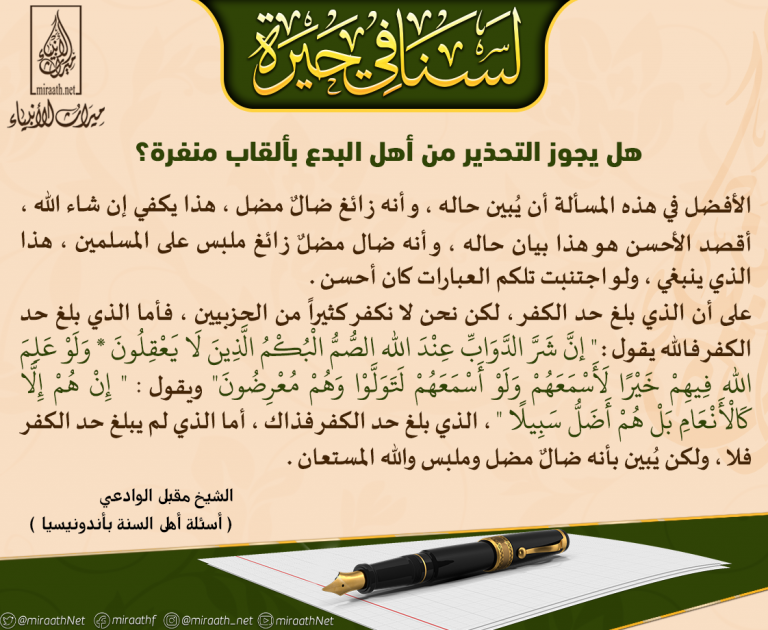 لسنا في حيرة
miraath.net
ميراث الأنبياء
هل يجوز التحذير من أهل البدع بألقاب منفرة؟
الأفضل في هذه المسألة أن يُبين حاله ، وأنه زائغ ضالٌ مضل ، هذا يكفي إن شاء الله ،
أقصد الأحسن هو هذا بيان حاله ، وأنه ضال مضلٌ زائغ ملبس على المسلمين ، هذا
الذي ينبغي ، ولو اجتنبت تلكم العبارات كان أحسن .
على أن الذي بلغ حد الكفر ، لكن نحن لا نكفر كثيراً من الحزبيين ، فأما الذي بلغ حد
الكفر فالله يقول : " إنَّ شَرَّ الدَّوَابِّ عِنْدَ الله الصُّمُّ الْبُكْمُ الَّذِينَ لَا يَعْقِلُونَ * وَلَوْ عَلِمَ
الله فِيهِمْ خَيْرًا لَأَسْمَعَهُمْ وَلَوْ أَسْمَعَهُمْ لَتَوَلَّوْا وَهُمْ مُعْرِضُونَ" ويقول : " إِنْ هُمْ إِلَّا
كَالْأَنْعَامِ بَلْ هُمْ أَضَلُّ سَبِيلًا " ، الذي بلغ حد الكفر فذاك ، أما الذي لم يبلغ حد الكفر
فلا ، ولكن يُبين بأنه ضالٌ مضل وملبس والله المستعان .
الشيخ مقبل الوادعي
( أسئلة أهل السنة بأندونيسيا )
@miraathNet miraathf @miraath_net miraathNet